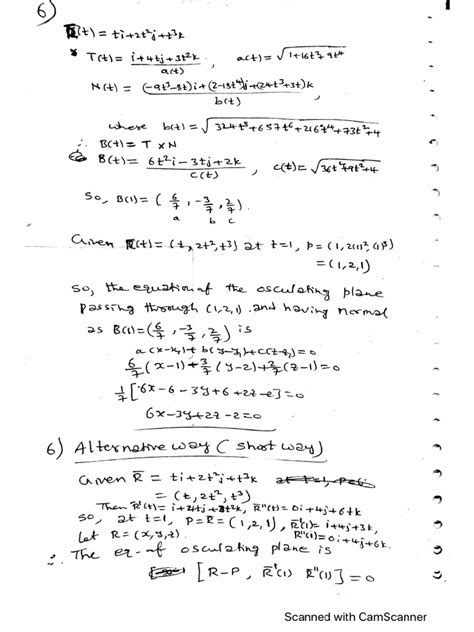 6)
R(t) = ti+2t²j+t³k
T(t) = i+4tj+3t²k / a(t) , a(t) = √1+16t²+9t⁴
N(t) = (-9t³-8t)i+(2-18t⁴)j+(24t³+3t)k / b(t)
where b(t) = √324t⁸+657t⁶+216t⁴+73t²+4
∴ B(t) = T × N
B(t) = 6t²i-3tj+2k / c(t) , c(t)=√36t⁴+9t²+4
So, B(1) = (6/7, -3/7, 2/7).
a b c
Given R(t) = (t, 2t², t³) at t=1, P = (1, 2(1)², (1)³)
= (1,2,1)
so, the equation of the osculating plane
passing through (1,2,1) and having normal
as B(1)=(6/7, -3/7, 2/7) is
a(x-x₁)+b(y-y₁)+c(z-z₁)=0
6/7(x-1)+3/7(y-2)+2/7(z-1)=0
1/7[6x-6-3y+6+2z-2]=0
6x-3y+2z-2=0
6) Alternative way (short way)
Given R̄ = ti+2t²j+t³k
= (t, 2t², t³)
Then R̄'(t)= i+4tj+3t²k, R̄''(t)= 0i+4j+6tk
So, at t=1, P=R=(1,2,1), R̄'(1)= i+4j+3k,
Let R = (x,y,z). R̄''(1)=0i+4j+6k.
∴ The eq- of osculating plane is
[R-P, R̄'(1) R̄''(1)]=0
Scanned with CamScanner